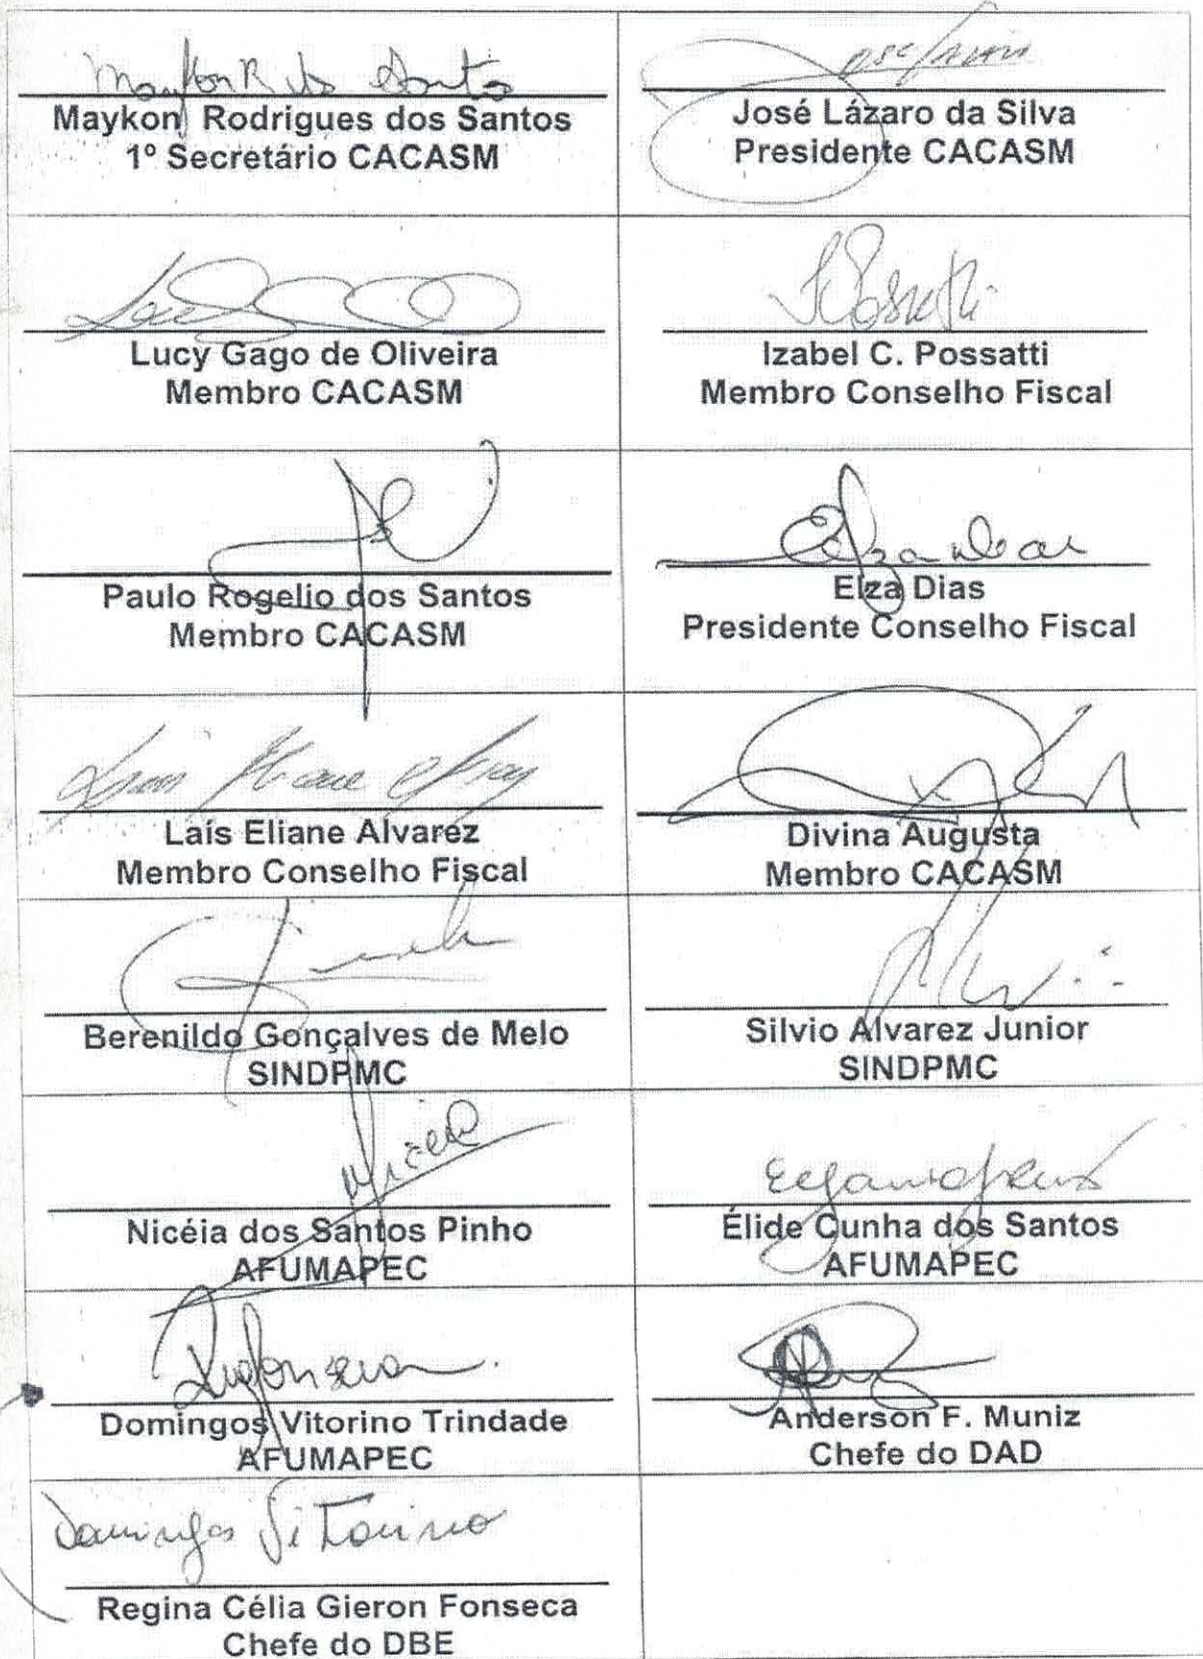 Maykon R dos Santos
Maykon Rodrigues dos Santos
1º Secretário CACASM
José Lázaro da Silva
Presidente CACASM
Lucy Gago de Oliveira
Membro CACASM
Izabel C. Possatti
Membro Conselho Fiscal
Paulo Rogelio dos Santos
Membro CACASM
Elza Dias
Elza Dias
Presidente Conselho Fiscal
Laís Eliane Alvarez
Membro Conselho Fiscal
Divina Augusta
Membro CACASM
Berenildo Gonçalves de Melo
SINDPMC
Silvio Alvarez Junior
SINDPMC
Nicéia
Nicéia dos Santos Pinho
AFUMAPEC
Élide Cunha dos Santos
AFUMAPEC
Domingos Vitorino Trindade
AFUMAPEC
Anderson F. Muniz
Chefe do DAD
Domingos Vitorino
Regina Célia Gieron Fonseca
Chefe do DBE